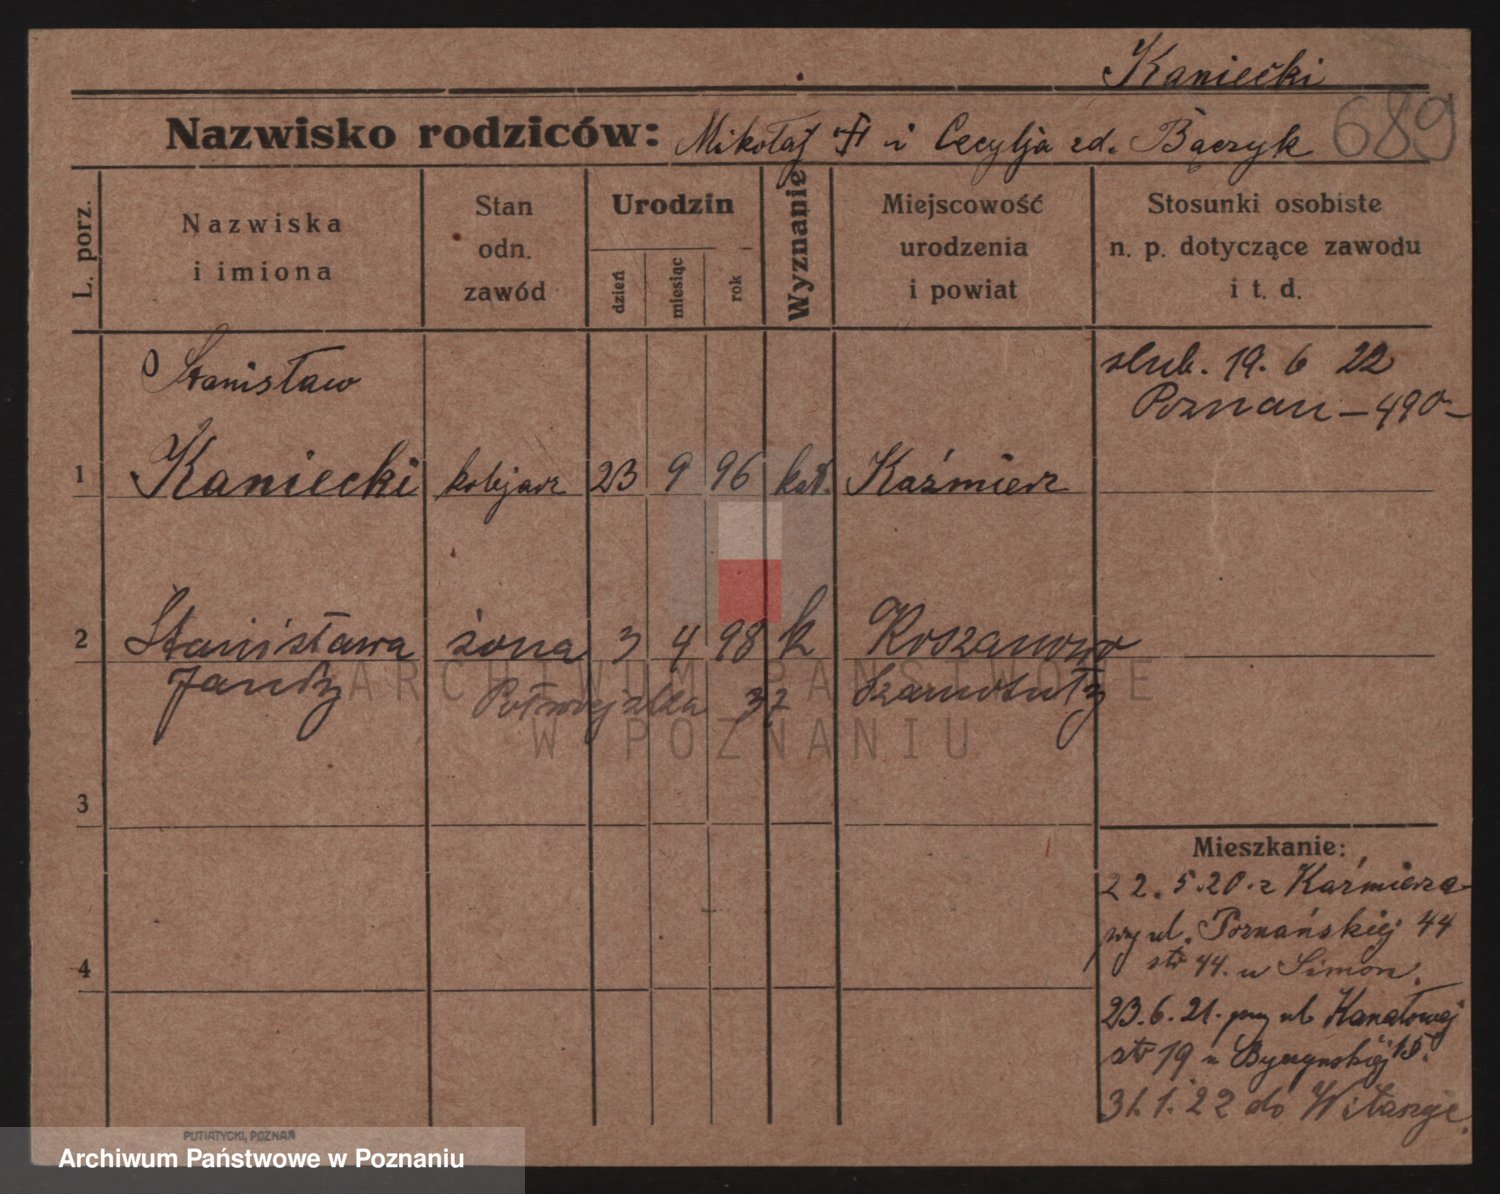 Kaniecki
689
Nazwisko rodziców: Mikołaj i Cecylja zd. Bączyk
L. porz.
Nazwiska i imiona
Stan odn. zawód
Urodzin
dzień
miesiąc
rok
Wyznanie
Miejscowość urodzenia i powiat
Stosunki osobiste n. p. dotyczące zawodu i t. d.
Stanisław
ślub. 19. 6 22
Poznań – 490 –
1 Kaniecki kolejarz 23 9 96 kat. Kaźmierz
2 Stanisława żona 3 4 98 k Koszanowo
Szamotuły
37
3
4
Mieszkanie:
22. 5. 20. z Kaźmierza
przy ul. Poznańskiej 44
str 44. u Simon.
23. 6. 21. przy ul Kanałowej
str 19 u 15.
31. 1. 22 do
PUTIATYCKI, POZNAŃ
ARCHIWUM PAŃSTWOWE
W POZNANIU
Archiwum Państwowe w Poznaniu